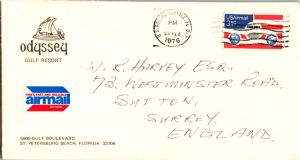 odyssey
GULF RESORT
PM
1976
USAirmail
31c
FAST AND RELIABLE
airmail
W. R. HARVEY ESQ.
73, WESTMINSTER ROAD,
SUTTON,
SURREY,
ENGLAND.
5405 GULF BOULEVARD
ST. PETERSBURG BEACH, FLORIDA 33706